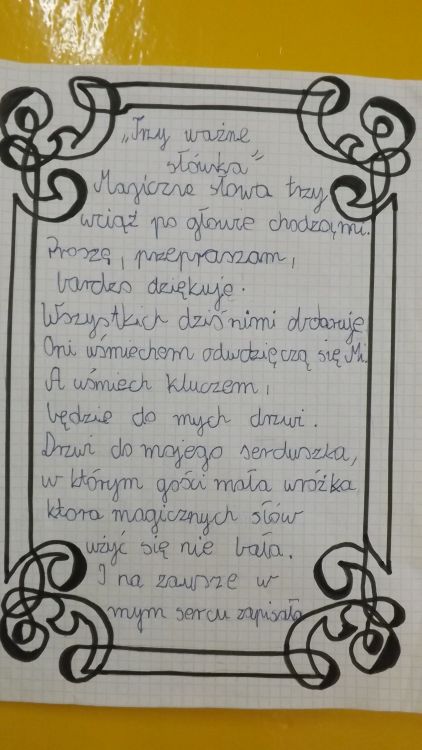 „Trzy ważne
słówka”
Magiczne słowa trzy
wciąż po głowie chodzą mi.
Proszę, przepraszam,
bardzo dziękuję.
Wszystkich dziś nimi obdaruję
Oni uśmiechem odwdzięczą się Mi.
A uśmiech kluczem,
będzie do mych drzwi.
Drzwi do mojego serduszka,
w którym gości mała wróżka
ktora magicznych słów
użyć się nie bała.
I na zawsze w
mym sercu zapisała